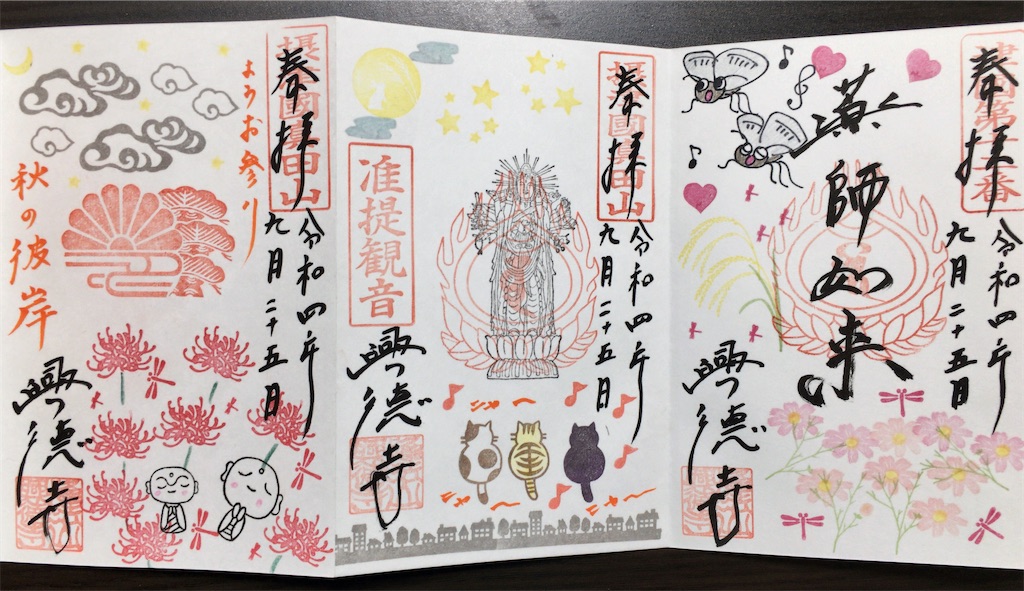 奉拝
令和四年
九月二十五日
薬師如来
興徳寺
奉拝
摂國眞田山
令和四年
九月二十五日
准提観音
興徳寺
にゃ～
にゃ～
にゃ～
奉拝
摂國眞田山
令和四年
九月二十五日
ようお参り
秋の彼岸
興徳寺